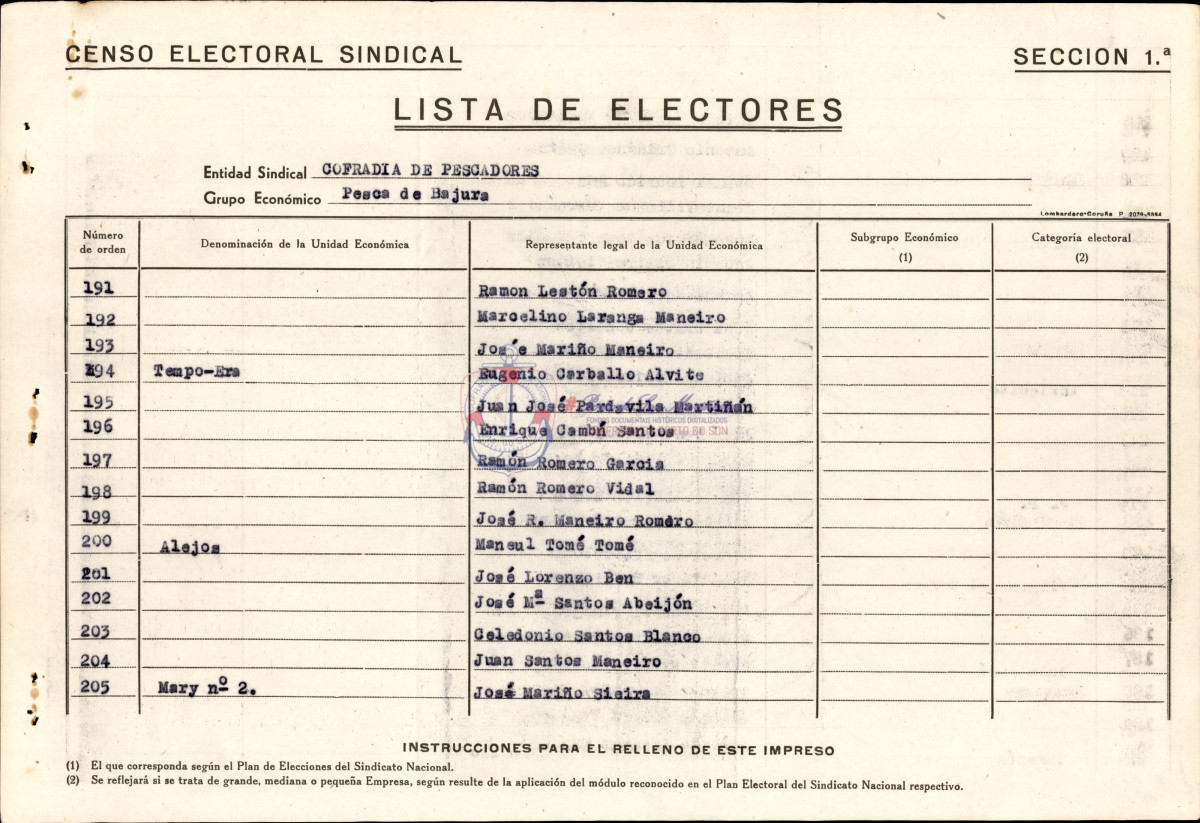 CENSO ELECTORAL SINDICAL
SECCION 1.ª
LISTA DE ELECTORES
Entidad Sindical COFRADIA DE PESCADORES
Grupo Económico Pesca de Bajura
Lombardero-Coruña P
Número de orden Denominación de la Unidad Económica Representante legal de la Unidad Económica Subgrupo Económico (1) Categoría electoral (2)
191 Ramon Lestón Romero
192 Marcelino Laranga Maneiro
193 José Mariño Maneiro
194 Tempo-Era Eugenio Carballo Alvite
195 Juan José Pardavila Martiñán
196 Enrique Cambń Santos
197 Ramón Romero Garcia
198 Ramón Romero Vidal
199 José R. Maneiro Romero
200 Alejos Maneul Tomé Tomé
201 José Lorenzo Ben
202 José Mª Santos Abeijón
203 Celedonio Santos Blanco
204 Juan Santos Maneiro
205 Mary nº 2. José Mariño Sieira
FONDOS DOCUMENTAIS HISTÓRICOS DIGITALIZADOS
INSTRUCCIONES PARA EL RELLENO DE ESTE IMPRESO
(1) El que corresponda según el Plan de Elecciones del Sindicato Nacional.
(2) Se reflejará si se trata de grande, mediana o pequeña Empresa, según resulte de la aplicación del módulo reconocido en el Plan Electoral del Sindicato Nacional respectivo.